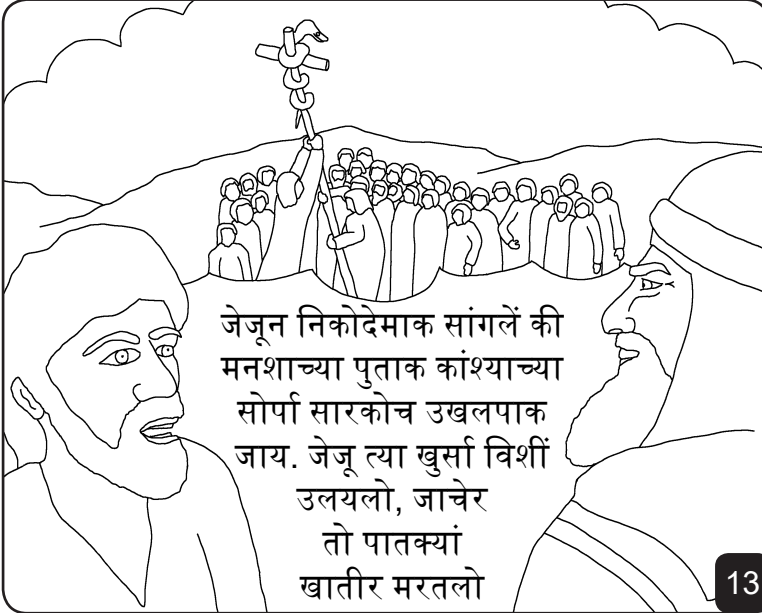 जेजून निकोदेमाक सांगलें की
मनशाच्या पुताक कांश्याच्या
सोर्पा सारकोच उखलपाक
जाय. जेजू त्या खुर्सा विशीं
उलयलो, जाचेर
तो पातक्यां
खातीर मरतलो
13